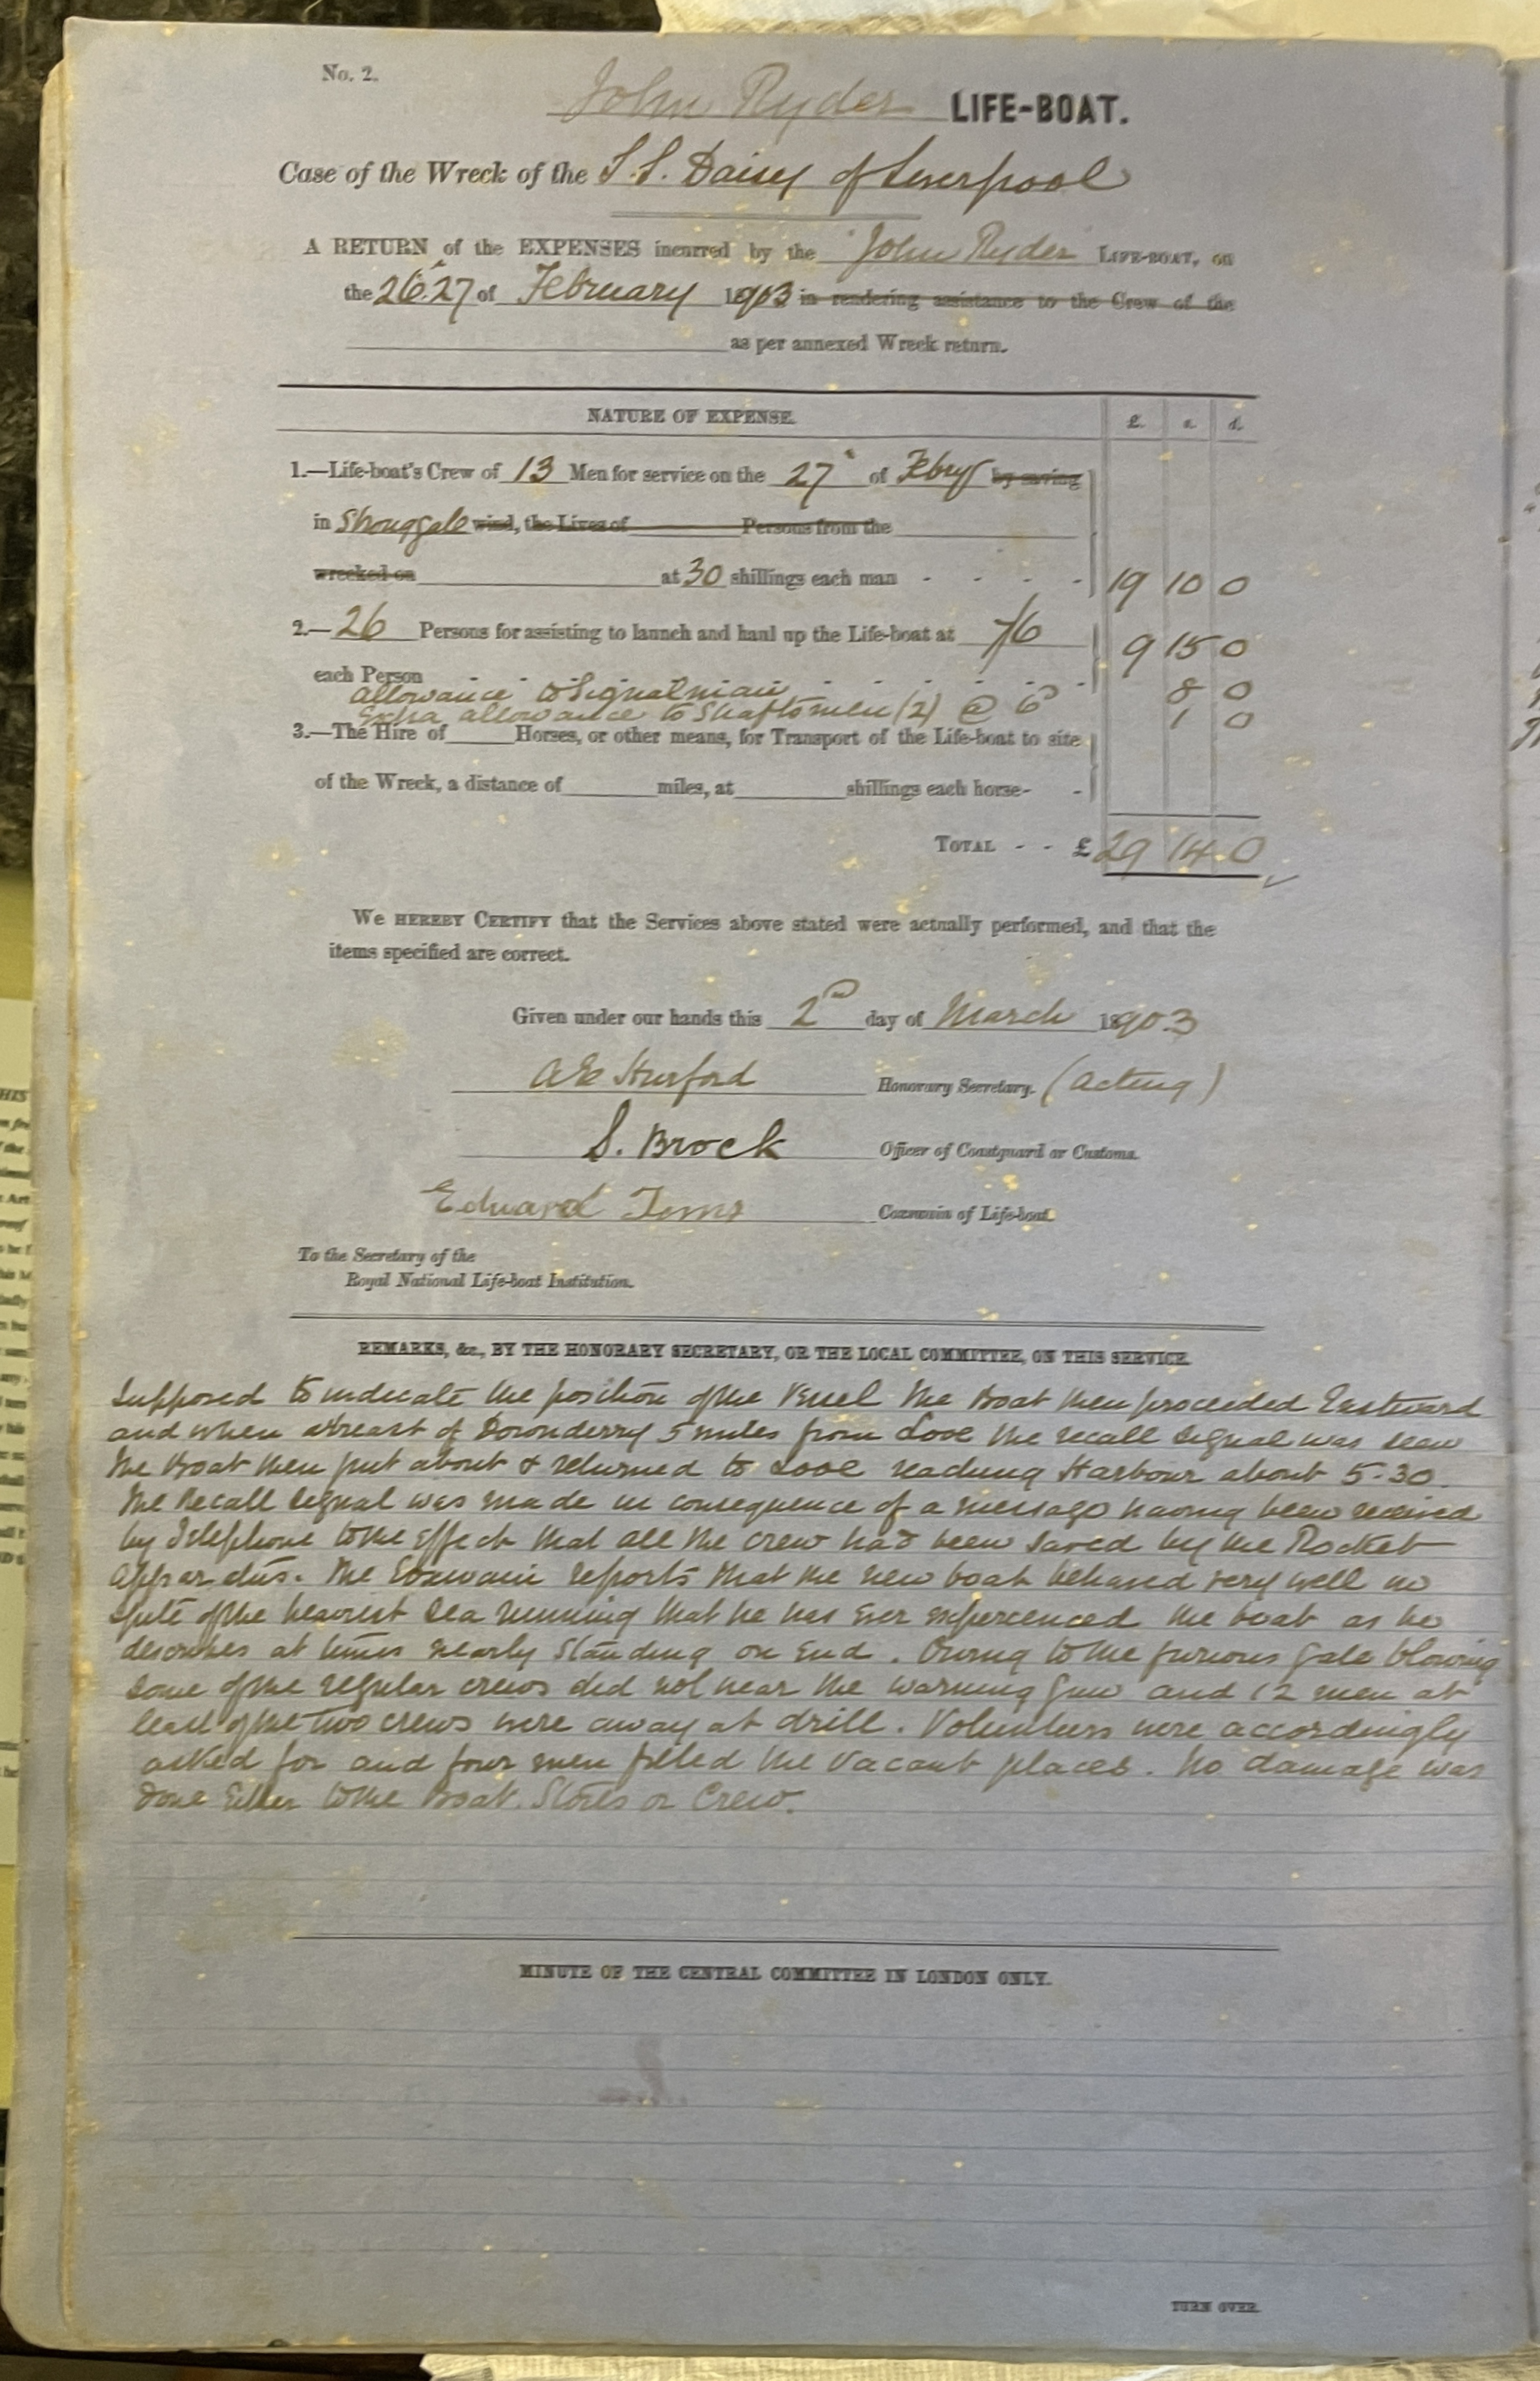 No. 2.
John Ryder LIFE-BOAT.
Case of the Wreck of the S.S. Daisy of Liverpool
A RETURN of the EXPENSES incurred by the "John Ryder" LIFE-BOAT, on
the 26.27 of February 1903 in rendering assistance to the Crew of the
as per annexed Wreck return.
NATURE OF EXPENSE. £. s. d.
1.—Life-boat's Crew of 13 Men for service on the 27 of Febry by saving
in Strong gale wind, the Lives of Persons from the
wrecked on at 30 shillings each man - - - - 19 10 0
2.—26 Persons for assisting to launch and haul up the Life-boat at 7/6 9 15 0
each Person
allowance to Signalman 8 0
Extra allowance to Shaftsmen (2) @ 6d 1 0
3.—The Hire of Horses, or other means, for Transport of the Life-boat to site
of the Wreck, a distance of miles, at shillings each horse- -
TOTAL - - £ 29 14 0
We HEREBY CERTIFY that the Services above stated were actually performed, and that the
items specified are correct.
Given under our hands this 2nd day of March 1903
Hurford Honorary Secretary. (Acting)
S. Brock Officer of Coastguard or Customs.
Edward Toms Coxswain of Life-boat.
To the Secretary of the
Royal National Life-boat Institution.
REMARKS, &c., BY THE HONORARY SECRETARY, OR THE LOCAL COMMITTEE, ON THIS SERVICE.
supposed to indicate the position of the Vessel The Boat then proceeded Eastward
and when abreast of Downderry 5 miles from Looe the recall signal was seen
The Boat then put about & returned to Looe reaching Harbour about 5.30.
The Recall signal was made in consequence of a message having been received
by Telephone to the effect that all the crew had been saved by the Rocket
apparatus. The Coxswain reports that the new boat behaved very well in
spite of the heaviest sea running that he has ever experienced the boat as he
describes at times nearly standing on End. Owing to the furious gale blowing
some of the regular crews did not hear the warning gun and 12 men at
least of the two crews were away at drill. Volunteers were accordingly
asked for and four men filled the vacant places. No damage was
done Either to the Boat, Stores or Crew.
MINUTE OF THE CENTRAL COMMITTEE IN LONDON ONLY.
TURN OVER.